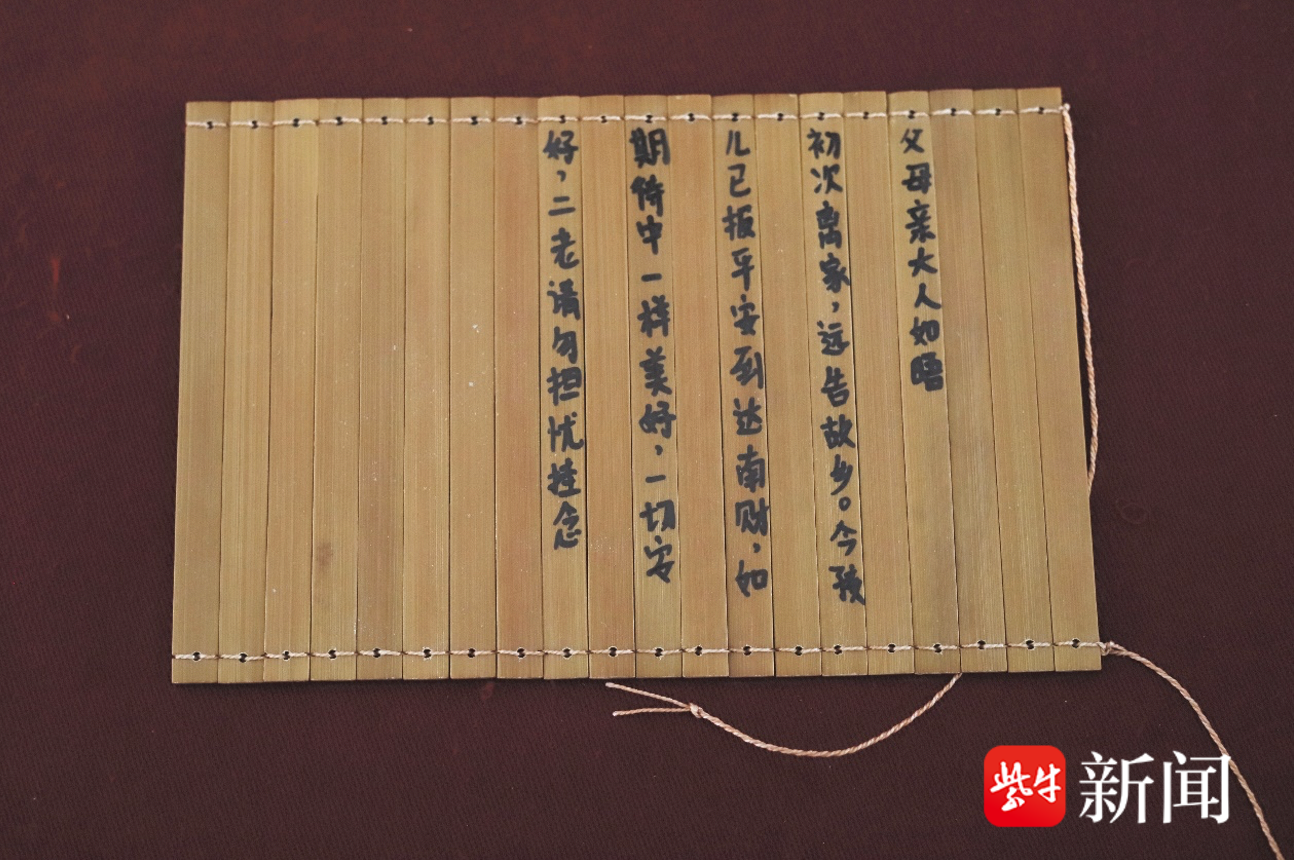 父母亲大人如晤
初次离家，远告故乡。今孩
儿已报平安到达南财，如
期待中一样美好，一切安
好，二老请勿担忧挂念
紫牛新闻